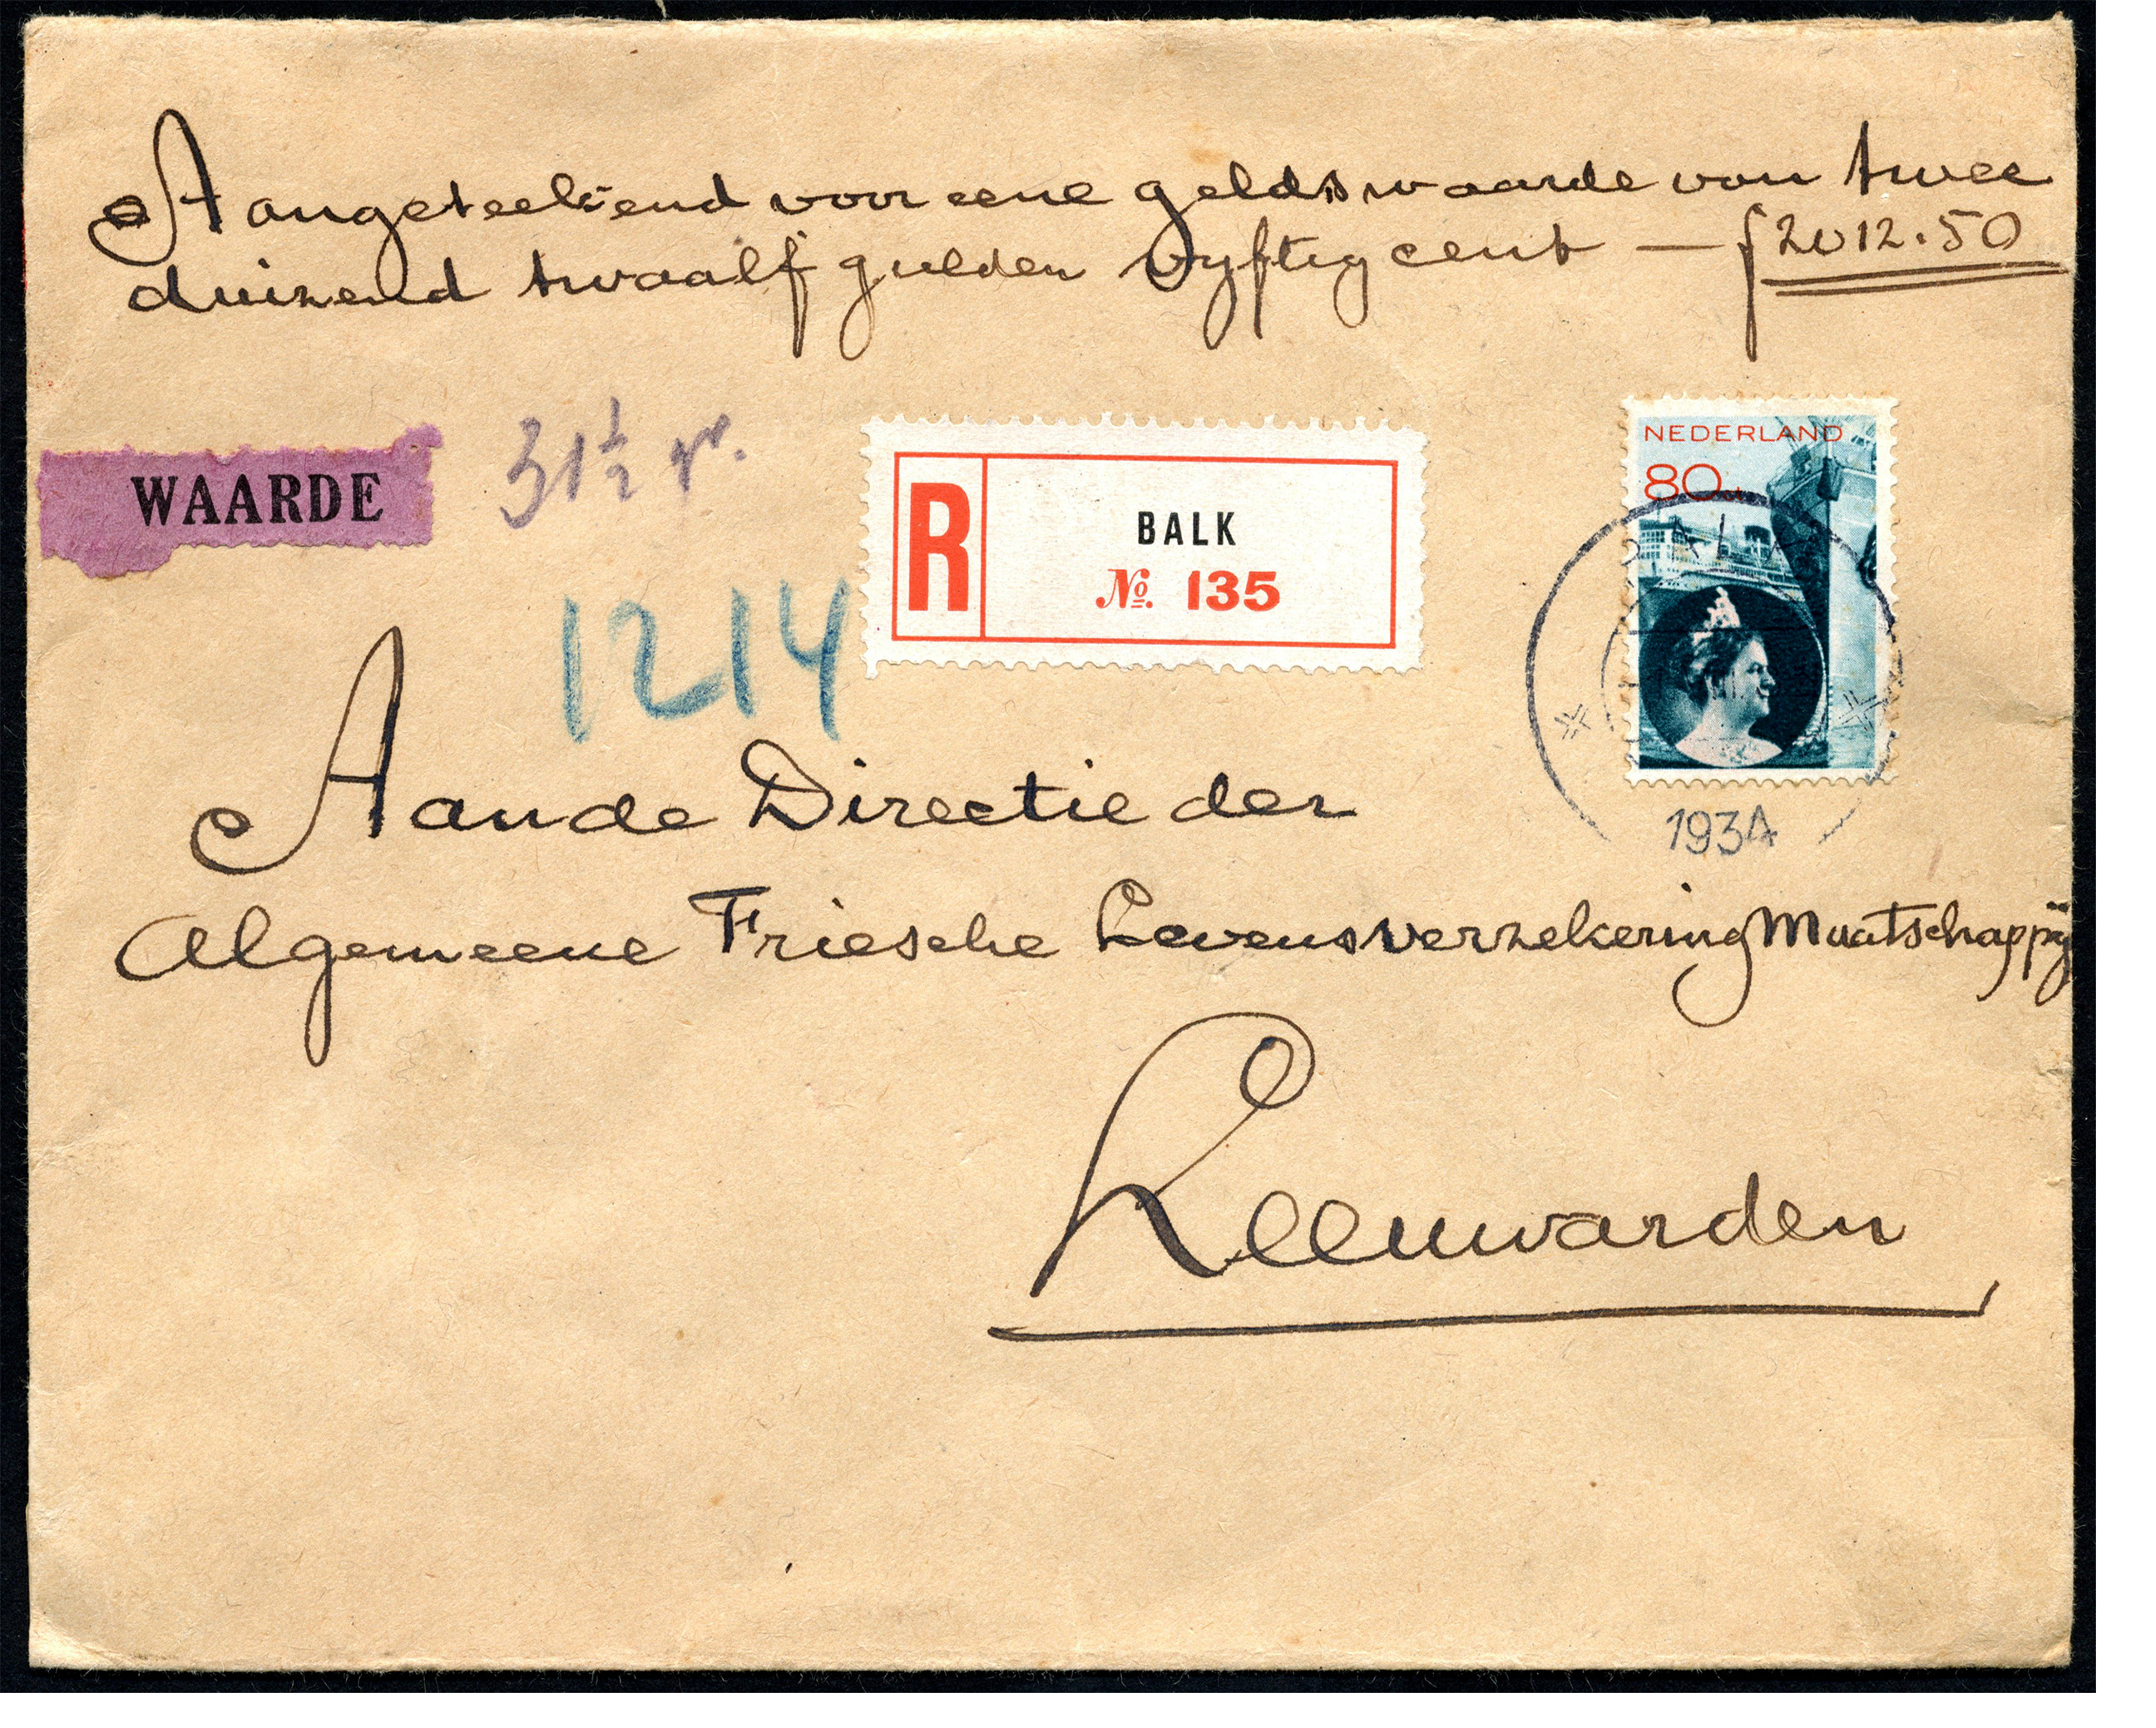 Aangeteekend voor eene geldswaarde van twee
duizend twaalf gulden vyftig cent — ƒ 2012.50
WAARDE
31½ gr.
R
BALK
№. 135
NEDERLAND
80
1214
1934
Aan de Directie der
Algemeene Friesche Levensverzekering Maatschappij
Leeuwarden